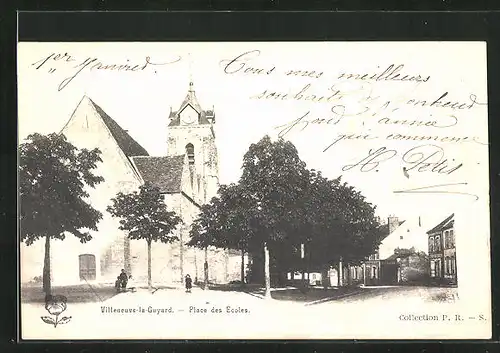 1er Janvier.
Tous mes meilleurs
souhaits
pour l'année
qui commence
Villeneuve-la-Guyard. — Place des Ecoles.
Collection P. R. — S.